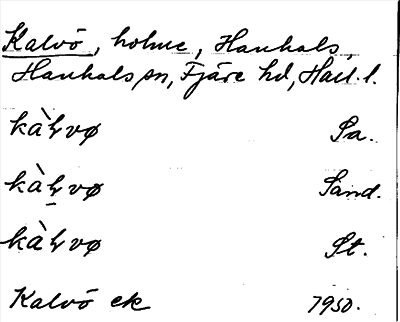 Kalvö, holme, Hanhals,
Hanhals sn, Fjäre hd, Hall. l.
kàɫvø Sa.
kàɫvø Sand.
kàɫvø St.
Kalvö ek 1950.